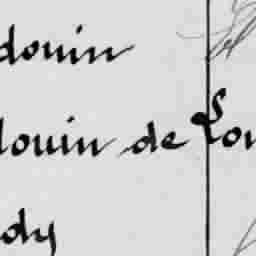 douin
douin de Lou
dy